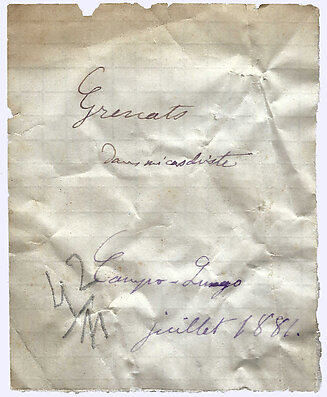 Grenats
dans micaschiste
Campo-Lungo
juillet 1881.
42
M